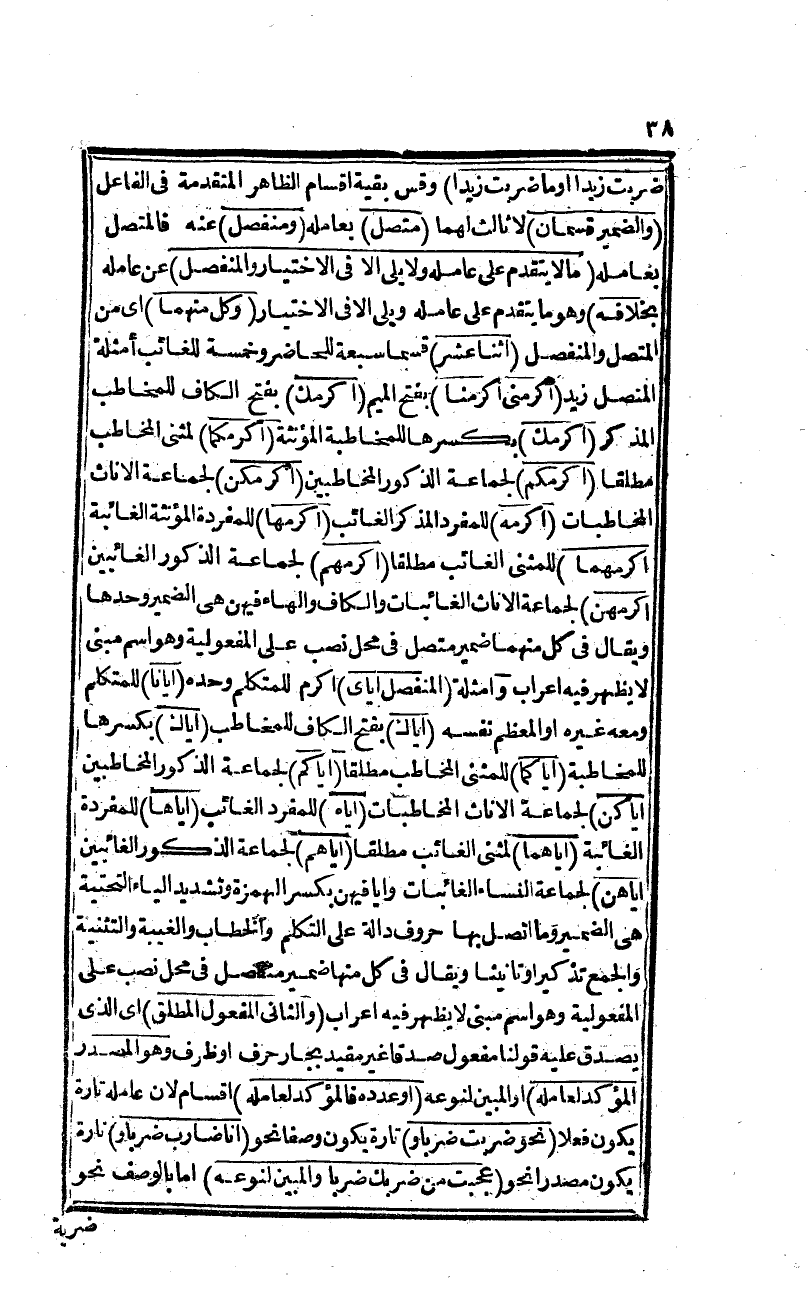 ٣٨
ضربت زيدا اوما ضربت زيدا) وقس بقية اقسام الظاهر المتقدمة فى الفاعل
(والضمير قسمان) لا ثالث لهما (متصل) بعامله (ومنفصل) عنه فالمتصل
بعامله (مالا يتقدم على عامله ولا يلى الا فى الاختيار والمنفصل) عن عامله
بخلافه) وهو ما يتقدم على عامله ويلى الا فى الاختيار (وكل منهما) اى من
المتصل والمنفصل (اثنا عشر) قسما سبعة للحاضر وخمسة للغائب أمثلة
المتصل زيد (أكرمنى أكرمنا) بفتح الميم (اكرمك) بفتح الكاف للمخاطب
المذكر (اكرمك) بكسرها للمخاطبة المؤنثة (أكرمكما) لمثنى المخاطب
مطلقا (اكرمكم) لجماعة الذكور المخاطبين (أكرمكن) لجماعة الاناث
المخاطبات (اكرمه) للمفرد المذكر الغائب (اكرمها) للمفردة المؤنثة الغائبة
اكرمهما) للمثنى الغائب مطلقا (اكرمهم) لجماعة الذكور الغائبين
اكرمهن) لجماعة الاناث الغائبات والكاف والهاء فيهن هى الضمير وحدها
ويقال فى كل منهما ضمير متصل فى محل نصب على المفعولية وهو اسم مبنى
لا يظهر فيه اعراب وامثلة (المنفصل اياى) اكرم للمتكلم وحده (ايانا) للمتكلم
ومعه غيره او المعظم نفسه (اياك) بفتح الكاف للمخاطب (اياك) بكسرها
للمخاطبة (اياكما) للمثنى المخاطب مطلقا (اياكم) لجماعة الذكور المخاطبين
اياكن) لجماعة الاناث المخاطبات (اياه) للمفرد الغائب (اياها) للمفردة
الغائبة (اياهما) لمثنى الغائب مطلقا (اياهم) لجماعة الذكور الغائبين
اياهن) لجماعة النساء الغائبات وايا فيهن بكسر الهمزة وتشديد الياء التحتية
هى الضمير وما اتصل بها حروف دالة على التكلم والخطاب والغيبة والتثنية
والجمع تذكيرا وتانيثا ويقال فى كل منها ضمير منفصل فى محل نصب على
المفعولية وهو اسم مبنى لا يظهر فيه اعراب (والثانى المفعول المطلق) اى الذى
يصدق عليه قولنا مفعول صدقا غير مقيد بجار حرف او ظرف وهو المصدر
المؤكد لعامله) او المبين لنوعه (او عدده فالمؤكد لعامله) اقسام لان عامله تارة
يكون فعلا (نحو ضربت ضربا و) تارة يكون وصفا نحو (انا ضارب ضربا و) تارة
يكون مصدرا نحو (عجبت من ضربك ضربا والمبين لنوعه) اما بالوصف نحو
ضربة